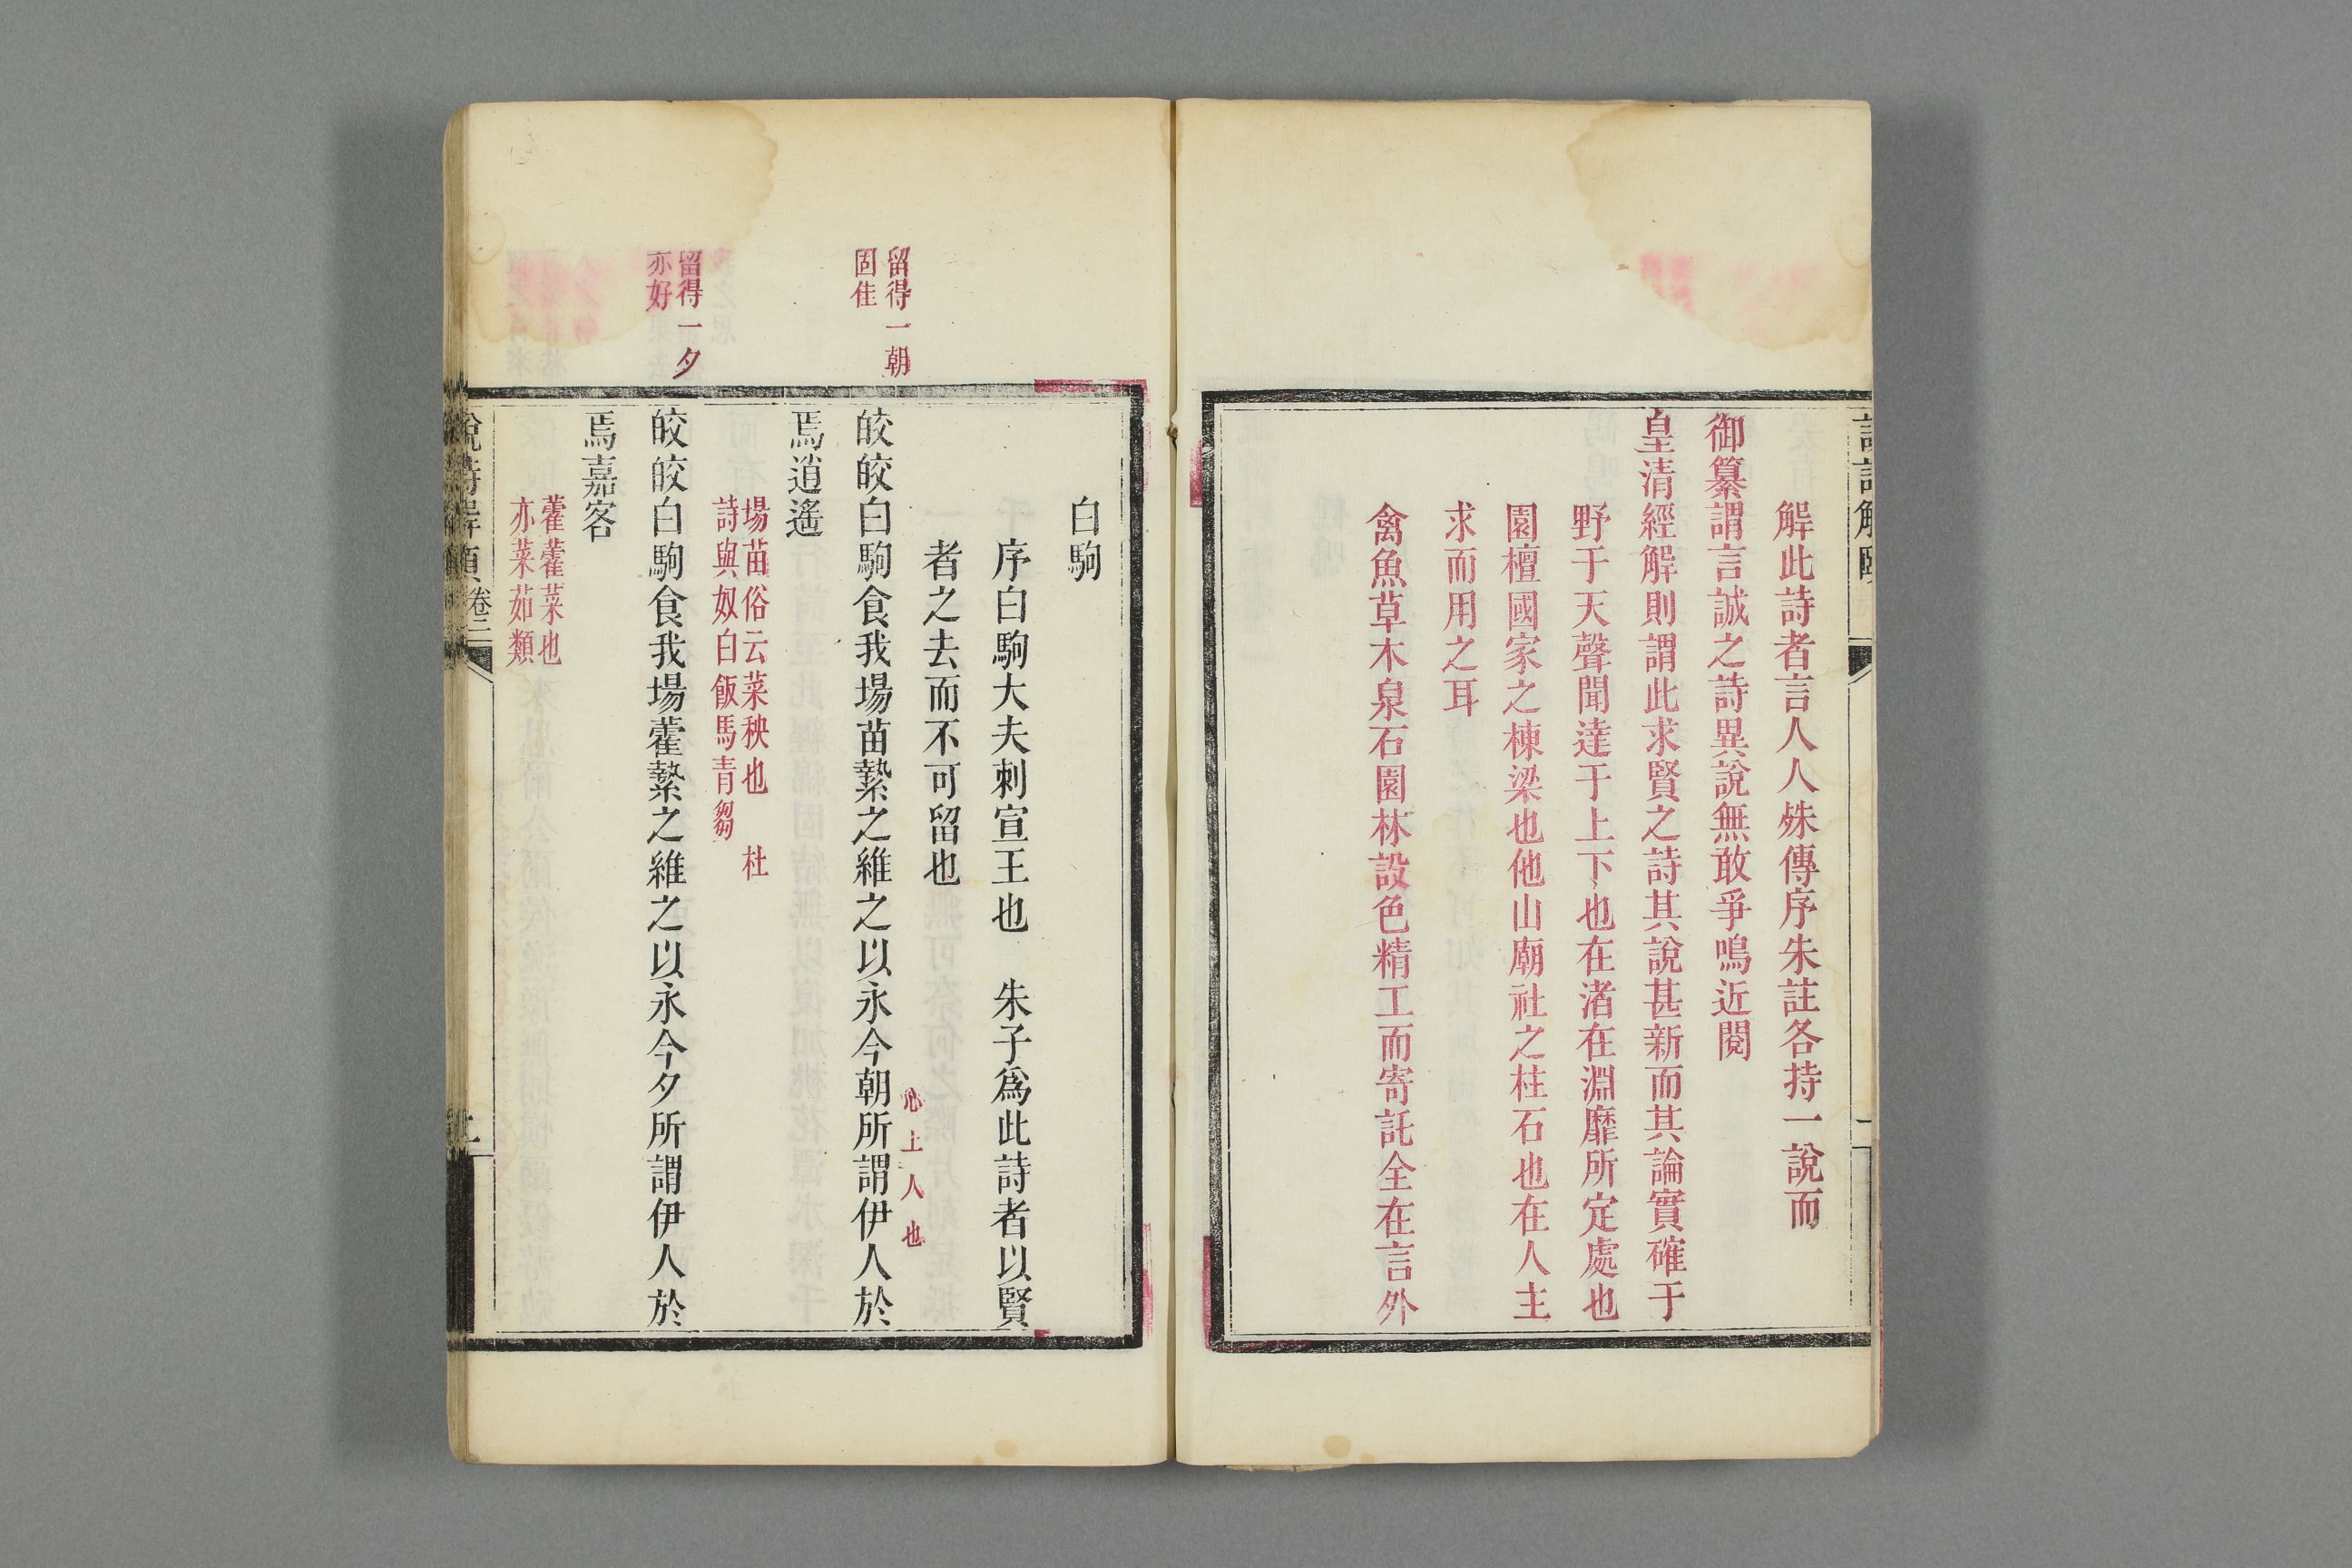 解此詩者言人人殊傳序朱註各持一說而
御纂謂言誠之詩異說無敢爭鳴近閱
皇清經解則謂此求賢之詩其說甚新而其論實確于
野于天聲聞達于上下也在渚在淵靡所定處也
園檀國家之棟梁也他山廟社之柱石也在人主
求而用之耳
禽魚草木泉石園林設色精工而寄託全在言外
白駒
序白駒大夫刺宣王也　朱子爲此詩者以賢
者之去而不可留也
留得一朝
固佳
心上人也
皎皎白駒食我場苗縶之維之以永今朝所謂伊人於
焉逍遙
場苗俗云菜秧也　杜
詩與奴白飯馬青芻
留得一夕
亦好
皎皎白駒食我場藿縶之維之以永今夕所謂伊人於
焉嘉客
藿藿菜也
亦菜茹類
說詩解頤 卷二